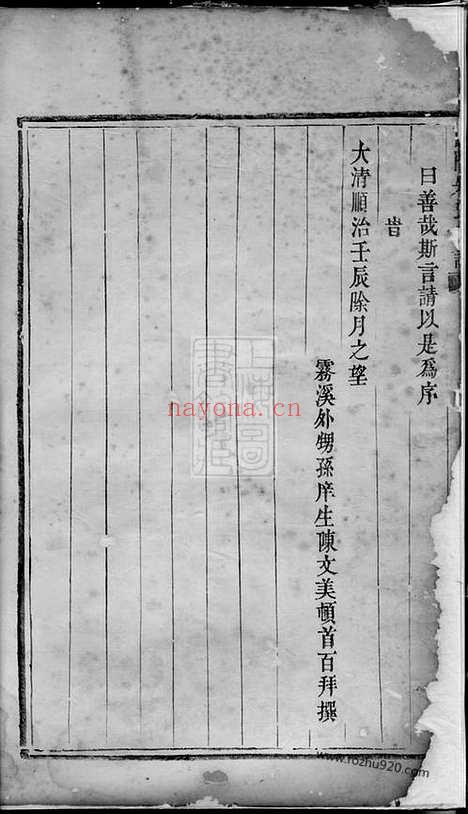 曰善哉斯言請以是爲序
旹
大清順治壬辰除月之望
霧溪外甥孫庠生陳文美頓首百拜撰
上海圖
書館藏
nayona.cn
www.rozhu920.com